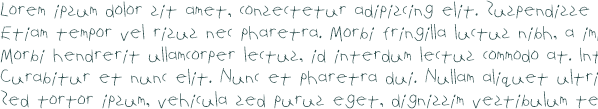 Lorem ipsum dolor sit amet, consectetur adipiscing elit. Suspendisse
Etiam tempor vel risus nec pharetra. Morbi fringilla luctus nibh, a im
Morbi hendrerit ullamcorper lectus, id interdum lectus commodo at. Int
Curabitur et nunc elit. Nunc et pharetra dui. Nullam aliquet ultri
Sed tortor ipsum, vehicula sed purus eget, dignissim vestibulum te